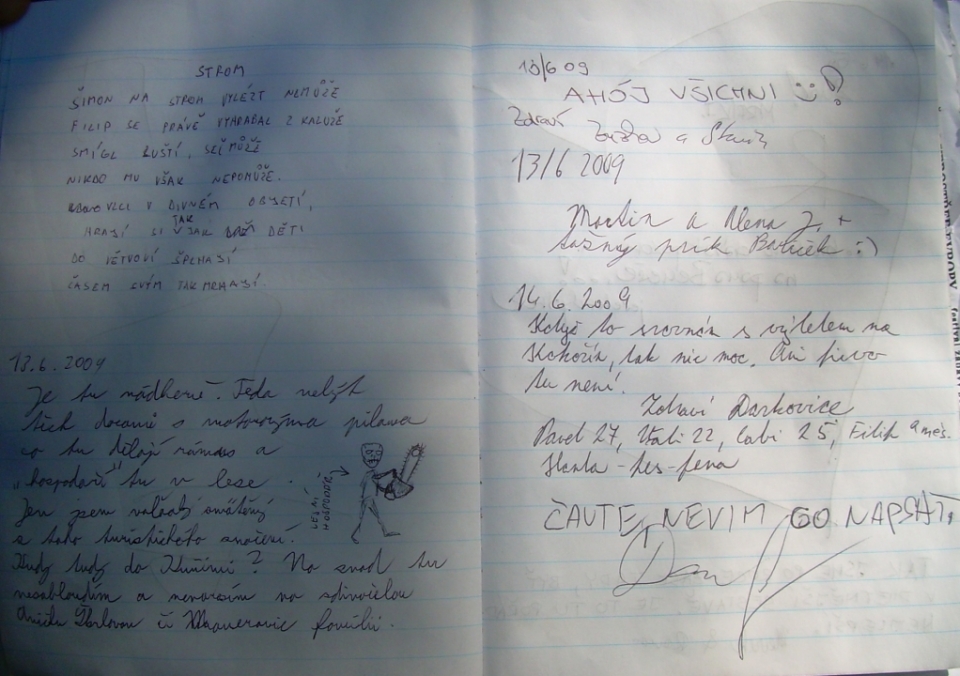 STROM
ŠIMON NA STROM VYLÉZT NEMŮŽE
FILIP SE PRÁVĚ VYHRABAL Z KALUŽE
SMÍGL KUŠTÍ, SEČ MŮŽE
NIKDO MU VŠAK NEPOMŮŽE.
V DIVNÉM OBJETÍ,
HRAJÍ SI TAK DĚTI
DO VĚTVOVÍ ŠPLHAJÍ
ČASEM SVÝM TAK MRHAJÍ.
13.6.2009
Je tu nádherně. Teda nebýt
těch docentů s motorovýma pilama
co tu dělají rámus a
"hospodaří" tu v lese.
LESNÍ
HOSPODÁŘ
Jen jsem z
toho turistického značení.
Kudy tudy do ? No snad tu
nezabloudím a nenarazím na zdivočelou
Aničku či familii.
13/6 09
AHÓJ VŠICHNI :-)!
Zdraví a
13/6 2009
Martin a Alena J. +
tažný prik :)
14.6.2009
Když to srovnám s výletem na
Kokořín, tak nic moc. Ani pivo
tu není!
Zdraví Darkovice
Pavel 27, 22, Gabi 25, Filip 9 měs.
- pes - fena
ČAUTE, NEVIM CO NAPSAT,
Dan